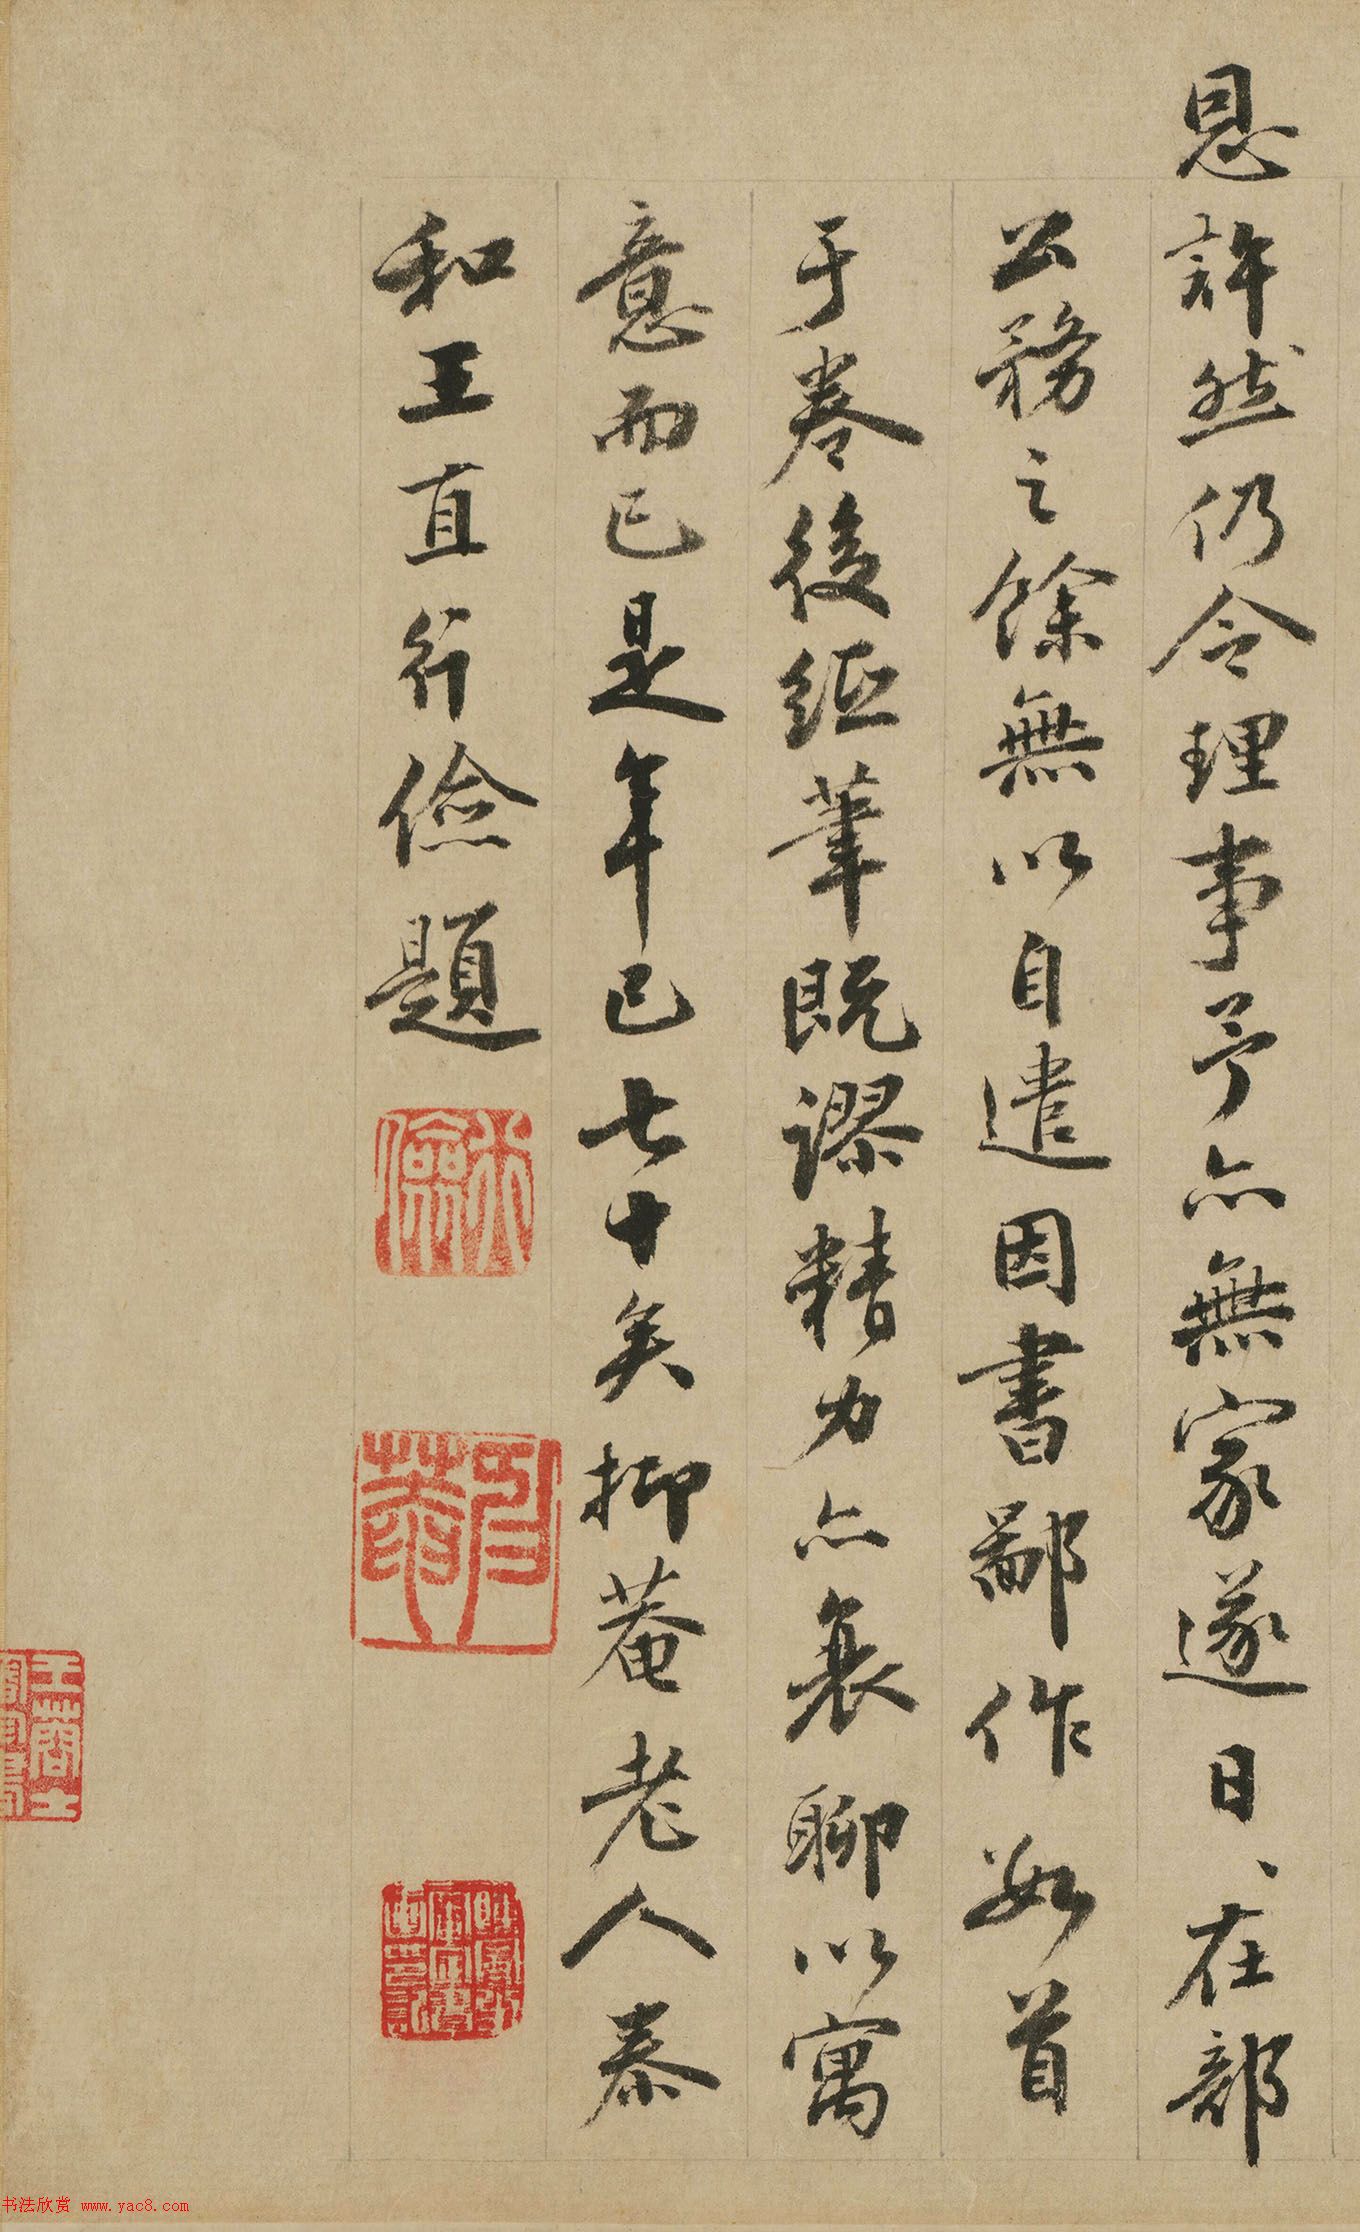 恩許然仍令理事予亦無家遂日、在部
公務之餘無以自遣因書鄙作數首
于卷後紙筆既謬精力亦衰聊以寓
意而已是年已七十矣抑菴老人泰
和王直行儉題
行儉
书法欣赏 www.yac8.com